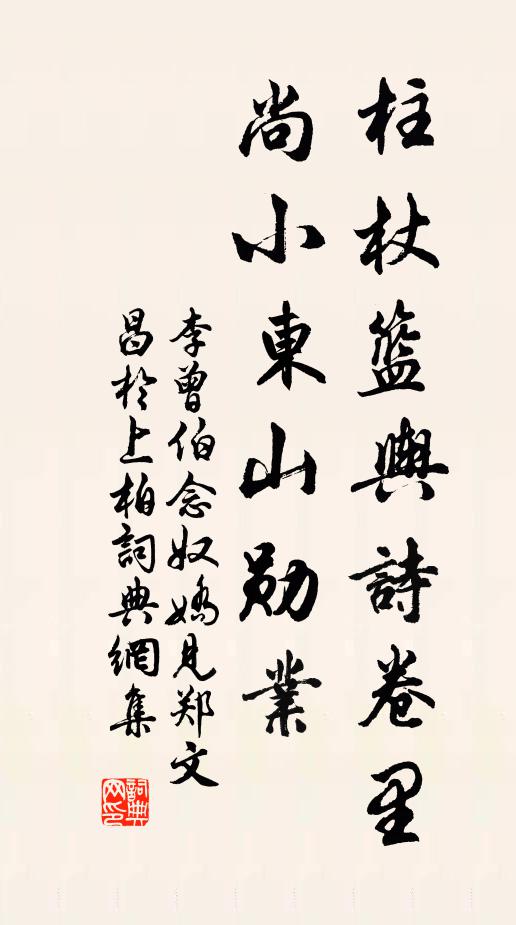 柱杖籃輿詩卷里
尚小東山勋業
李曾伯念奴嬌見郑文
昌於上柏詞典網集
詞典网印